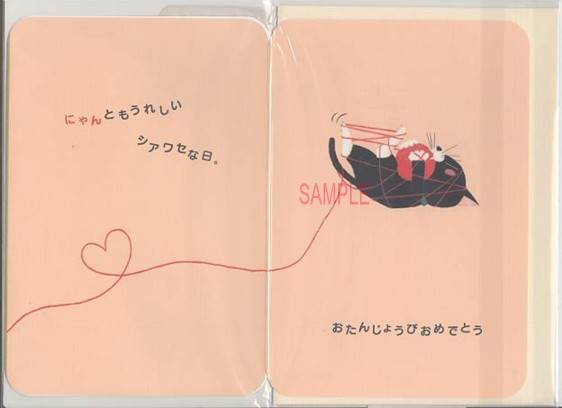 にゃんともうれしい
シアワセな日。
SAMPLE
おたんじょうびおめでとう